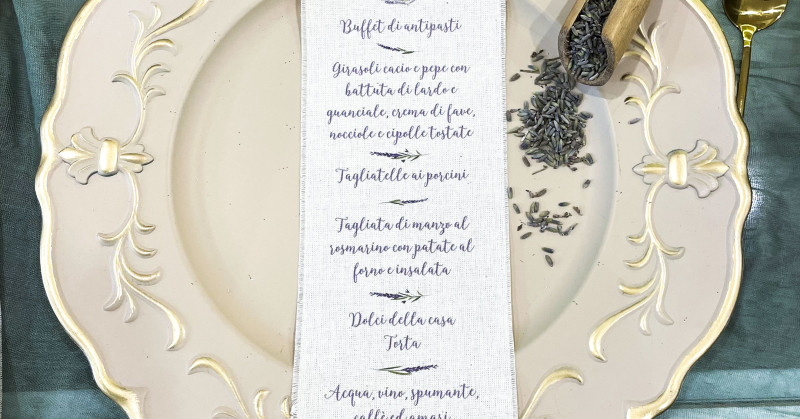 Buffet di antipasti
Girasoli cacio e pepe con
battuta di lardo e
guanciale, crema di fave,
nocciole e cipolle tostate
Tagliatelle ai porcini
Tagliata di manzo al
rosmarino con patate al
forno e insalata
Dolci della casa
Torta
Acqua, vino, spumante,
caffè ed amari